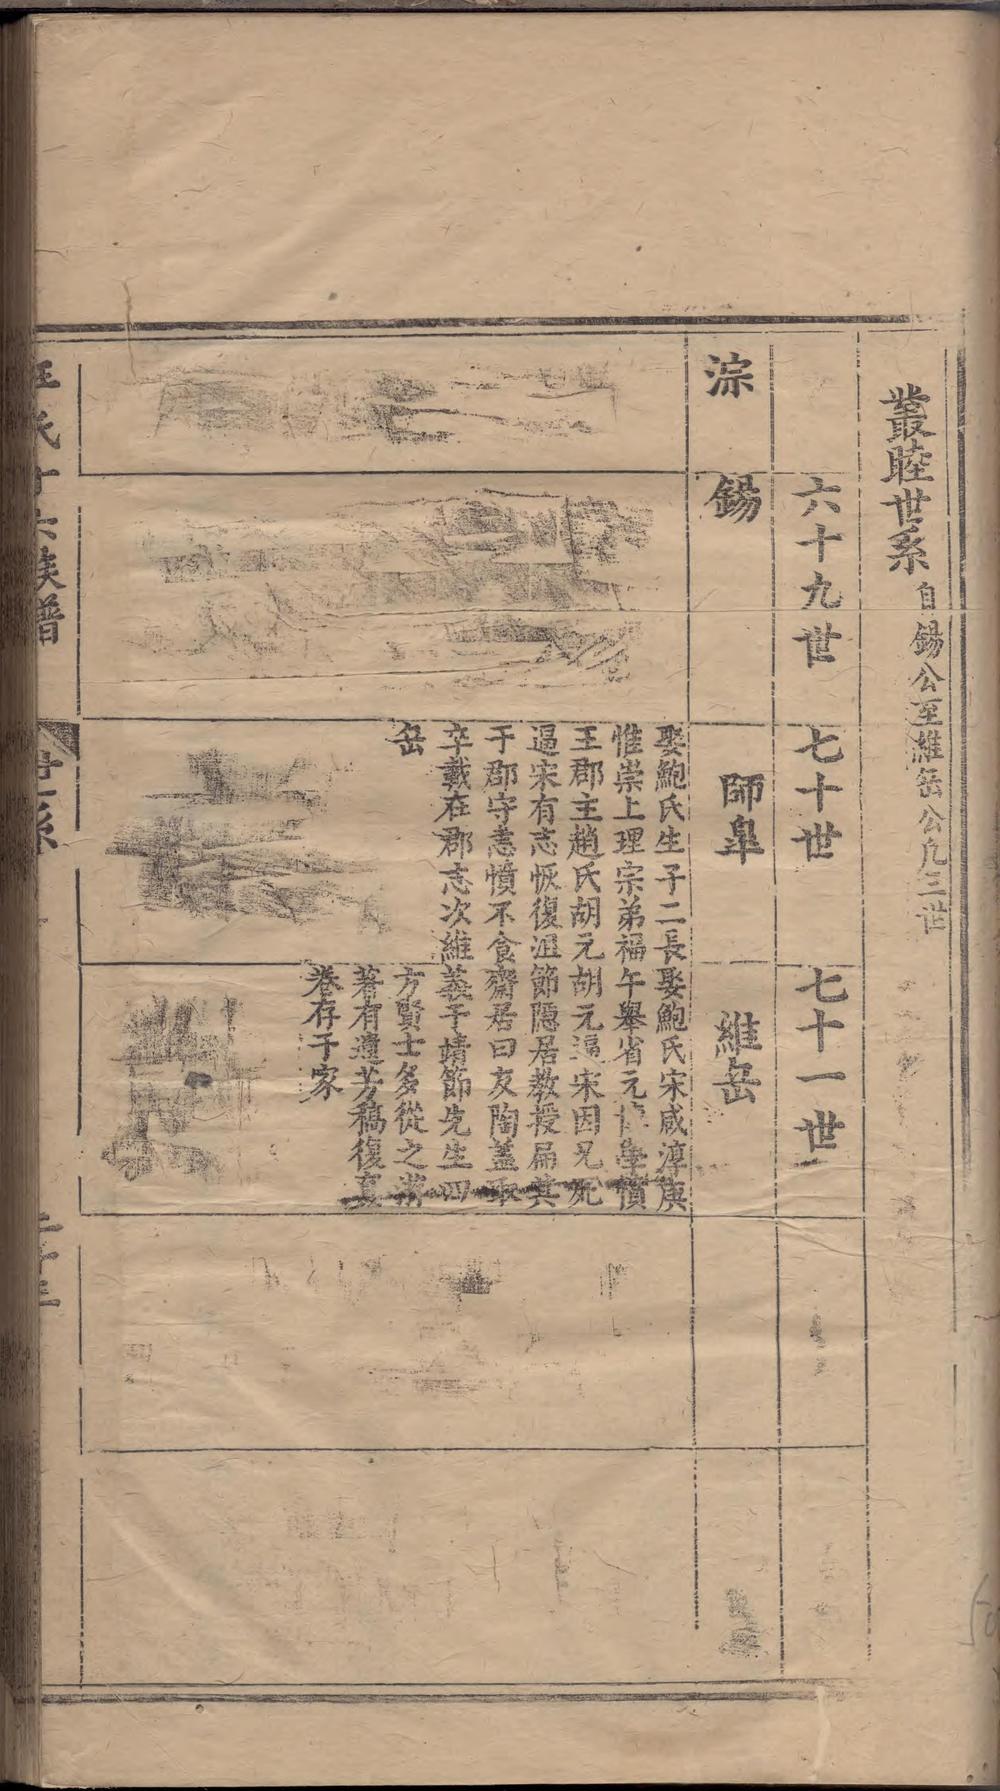 叢睦世系 自錫公至維嶽公凡三世
六十九世
七十世
七十一世
淙
錫
師臯
維岳
娶鮑氏生子二長
惟崇上理宗弟福
王郡主趙氏胡元
逼宋有志恢復沮
于郡守恚憤不食
卒載在郡志次維
岳
娶鮑氏宋咸淳庚
午舉省元 學憤
胡元逼宋因兄死
節隱居教授扁其
齋居曰友陶蓋取
義于靖節先生四
方賢士多從之
著有遺芳稿復
卷存于家
汪氏十六族譜
世系